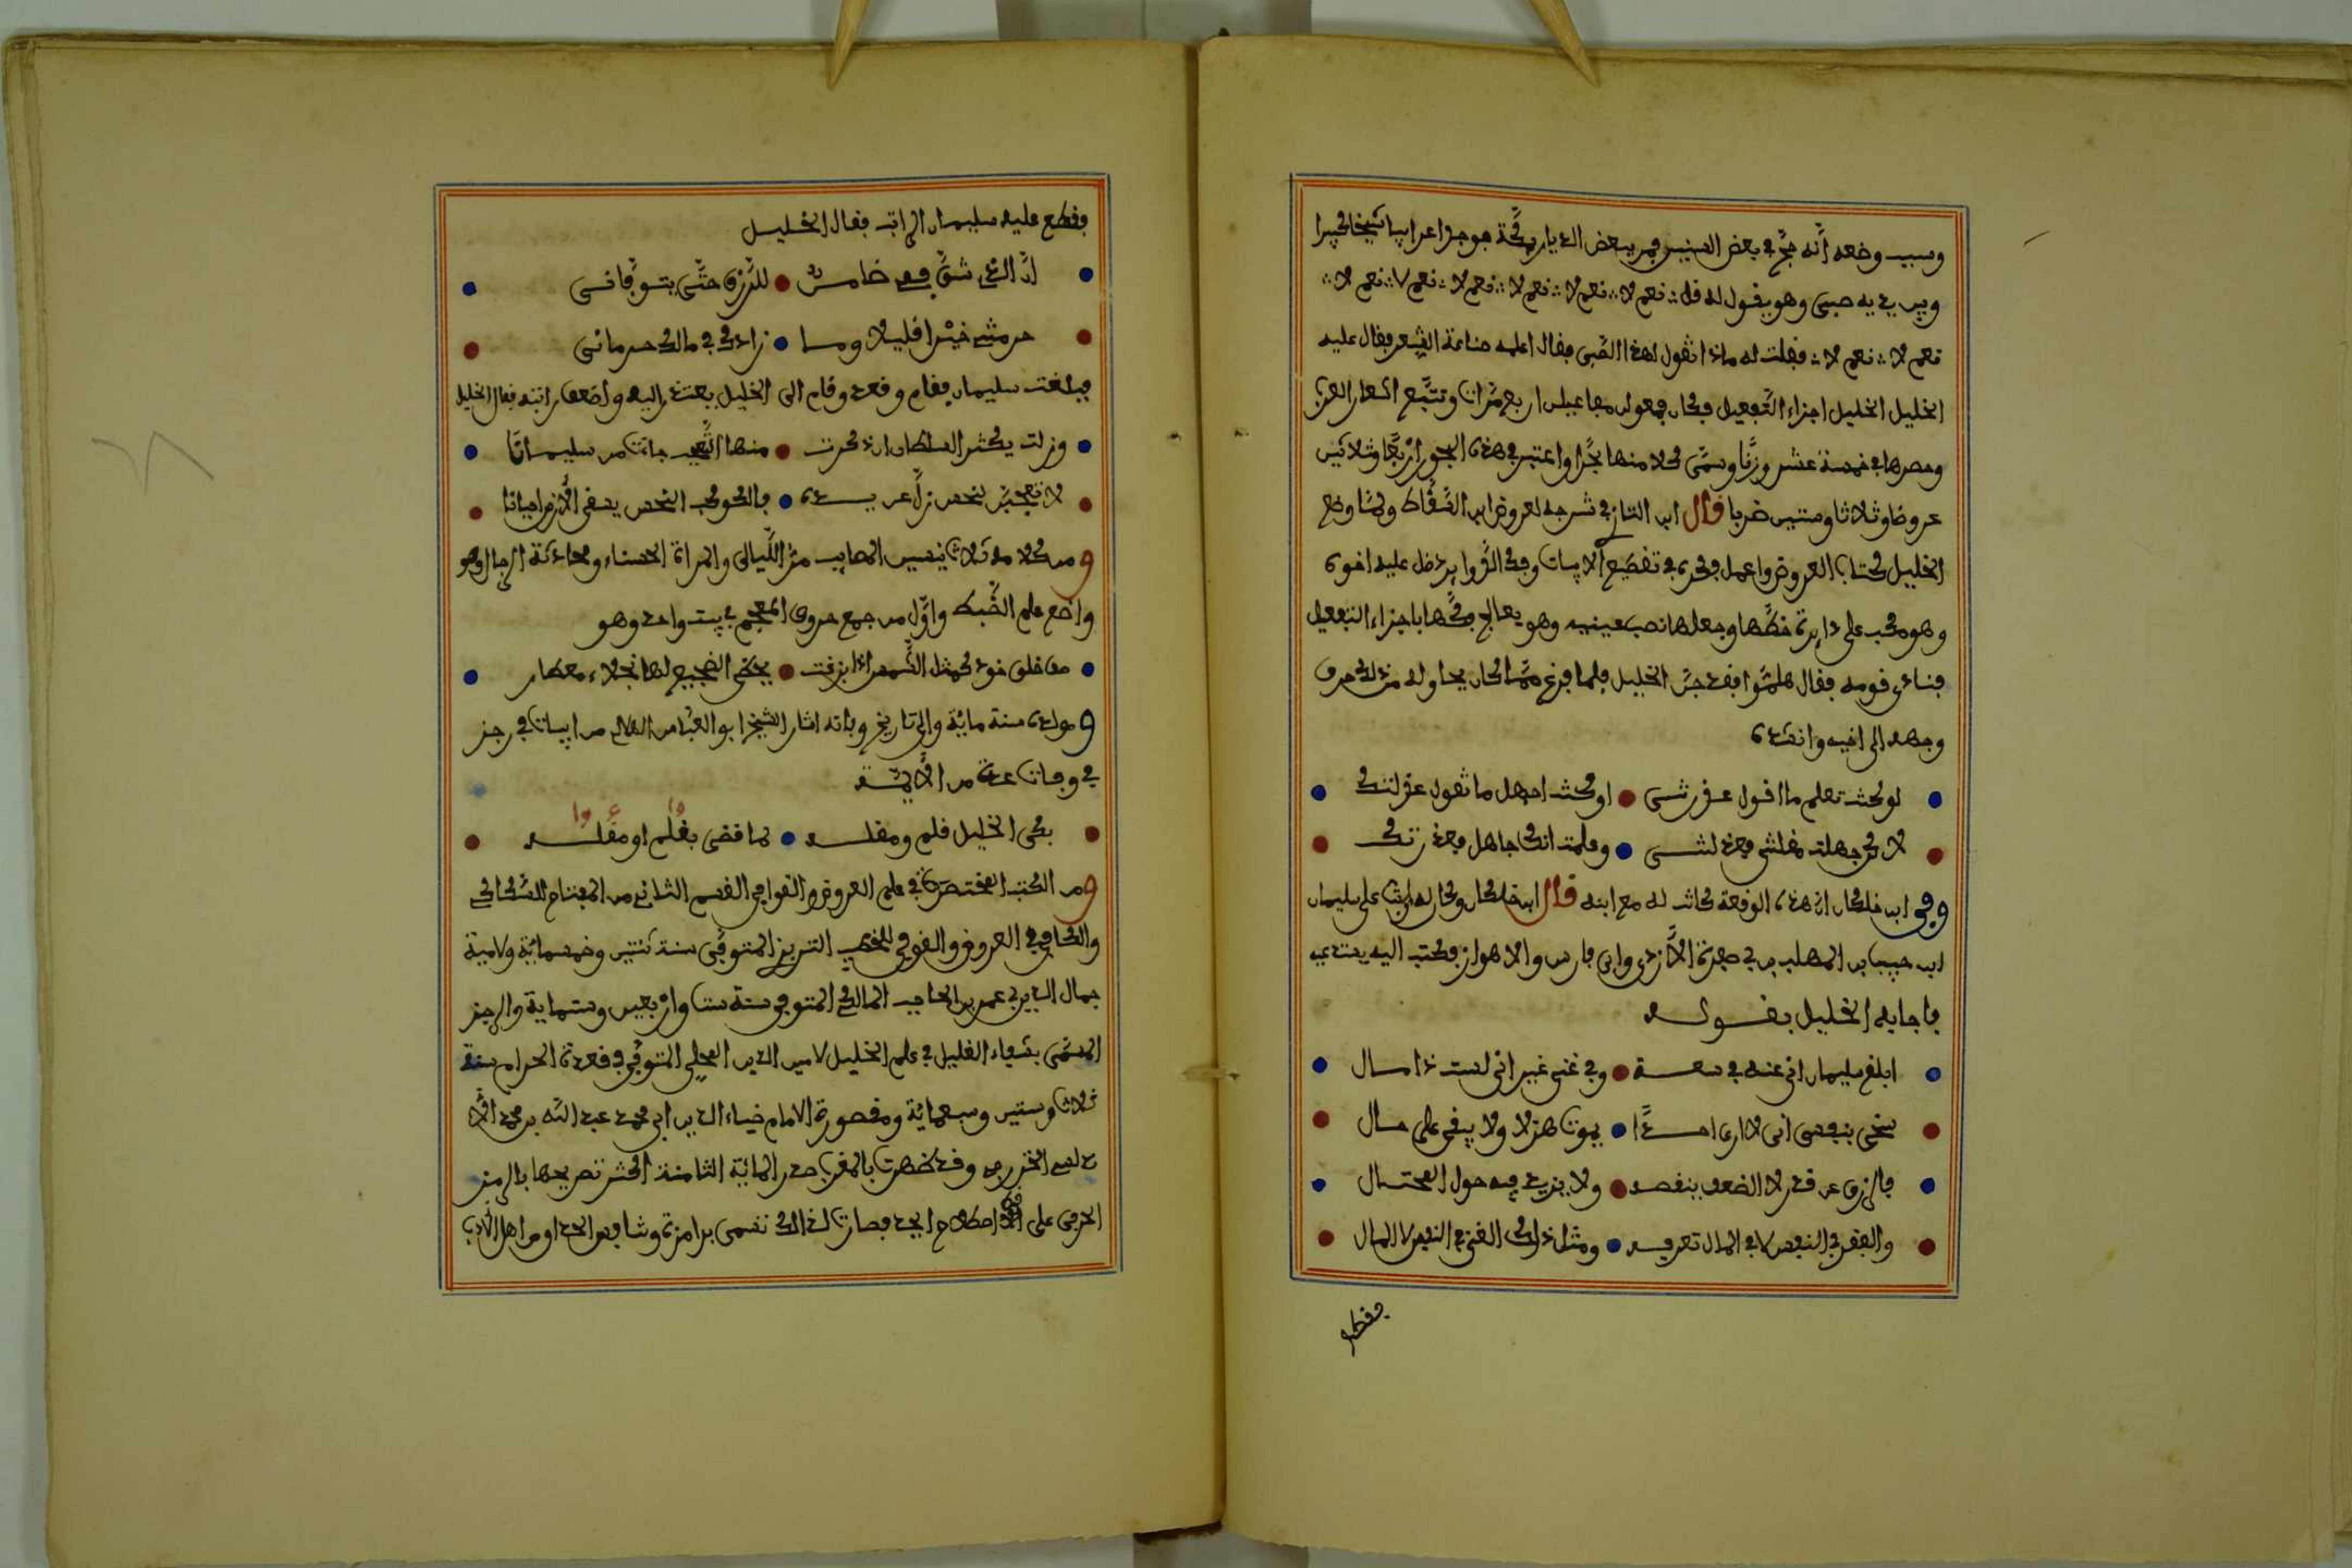 وسبب وضعه أنه حجّ في بعض السنين فمر ببعض الديار بمكة فوجد اعرابيا شيخا كبيرا
وبين يديه صبي وهو يقول له قل ∴ نعم لا ∴ نعم لا ∴ نعم لا ∴ نعم لا ∴ نعم لا ∴ نعم لا ∴
نعم لا ∴ نعم لا ∴ فقلت له ماذا تقول لهذا الصّبي فقال اعلمه صناعة الشعر فقال عليه
الخليل الخليل اجزاء التّفعيل فكان فعولن مفاعيلن اربع مرّات وتتبّع اشعار العرب
وحصرها في خمسة عشر وزنا وسمّى كلا منها بحرا واعتبر في هذه البحور اربعا وثلاثين
عروضا وثلاثا وستين ضربا قال ابن التازي في شرحه لعروض ابن السّقّاط ولمّا وضع
الخليل كتاب العروض واعمل فكره في تقطيع الابيات وفك الدّوائر دخل عليه اخوه
وهو مكب على دايرة خطّها وجعلها نصب عينيه وهو يعالج فكّها باجزاء التفعيل
فنادى قومه فقال هلمّوا فقد جنّ الخليل فلما فرغ ممّا كان يحاوله من ذلك صرف
وجهه الى اخيه وانشده
لو كنت تعلم ما اقول عذرتني • او كنت اجهل ما تقول عذلتك
لاكن جهلت مقالتي فعذلتني • وعلمت انك جاهل فعذرتك
وفي ابن خلكان ان هذه الوقعة كانت له مع ابنه قال ابن خلكان وكان له راتب على سليمان
ابن حبيب بن المهلب بن ابي صفرة الأزدي والى فارس والاهواز فكتب اليه يستدعيه
فاجابه الخليل بقوله
ابلغ سليمان اني عنه في سعة • وفي غنى غير اني لست ذا مال
سخى بنفسي اني لا ارى احدا • يموت هزلا ولا يبقى على حال
فالرزق عن قدر لا الضعف ينقصه • ولا يزيد فيه حول المحتال
والفقر في النفس لا في المال تعرفه • ومثل ذاك الغنى في النفس لا المال
فقطع
فقطع عليه سليمان الراتب فقال الخليل
انّ الذي شقّ فمي ضامن • للرّزق حتّى يتوفّاني
حرمتني خيرا قليلا وما • زادك في مالك حرماني
فبلغت سليمان فقام وقعد وقام الى الخليل يعتذر اليه واضعف راتبه فقال الخليل
وزلت يكثر السلطان ان ذكرت • منها التّعجب جاءت من سليمانا
لا تعجبنّ لخير زلّ عن يده • فالكوكب النحس يسقي الأرض احيانا
ومن كلامه ثلاث ينسين المصايب مرّ اللّيالي والمراة الحسناء ومحادثة الرجال وهو
واضع علم الضّبط واوّل من جمع حروف المعجم في بيت واحد وهو
صف خلق خود كمثل الشّمس اذ بزغت • يحظى الضجيع لها نجلاء معطار
ومولده سنة ماية والى تاريخ وفاته اشار الشيخ ابو العبّاس الهلالي من ابيات في رجز
في وفيات عدة من الأيمّة
بكى الخليل قلم ومقله • لما قضى بقلم او مقله
ومن الكتب المختصرة في علم العروض والقوافي القسم الثالث من المفتاح للسّكاكي
والكافي في العروض والقوافي للخطيب التبريزي المتوفّى سنة ثنتين وخمسماية ولامية
جمال الدين بن عمر بن الحاجب المالكي المتوفى سنة ست واربعين وستماية والرجز
المسمّى بشفاء الغليل في علم الخليل لامين الدين المحلي المتوفّى في قعدة الحرام سنة
ثلاث وستين وسبعماية ومقصورة الامام ضياء الدين ابي محمد عبد اللّه بن محمد الأن
دلسي الخزرجي وقد ظهرت بالمغرب صدر الماية الثامنة اكثر تصريحها بالرمز
الحرفي على اصطلاح ابجد فصارت لذالك تسمى برامزة وشافيه الحداو من اهل الأدب